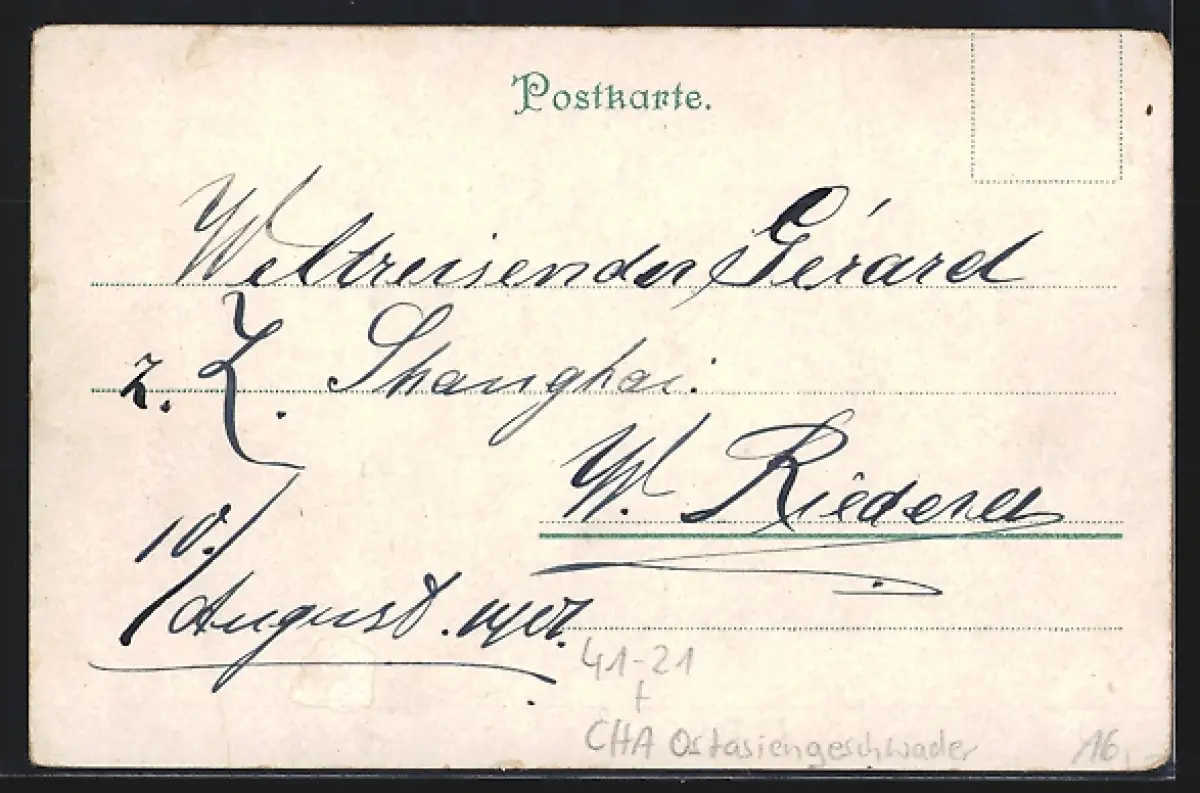 Postkarte.
Weltreisender Gérard
z. Z. Shanghai.
W. Riederer
10./
August. 1907.
41-21
+
CHA Ostasiengeschwader
16,